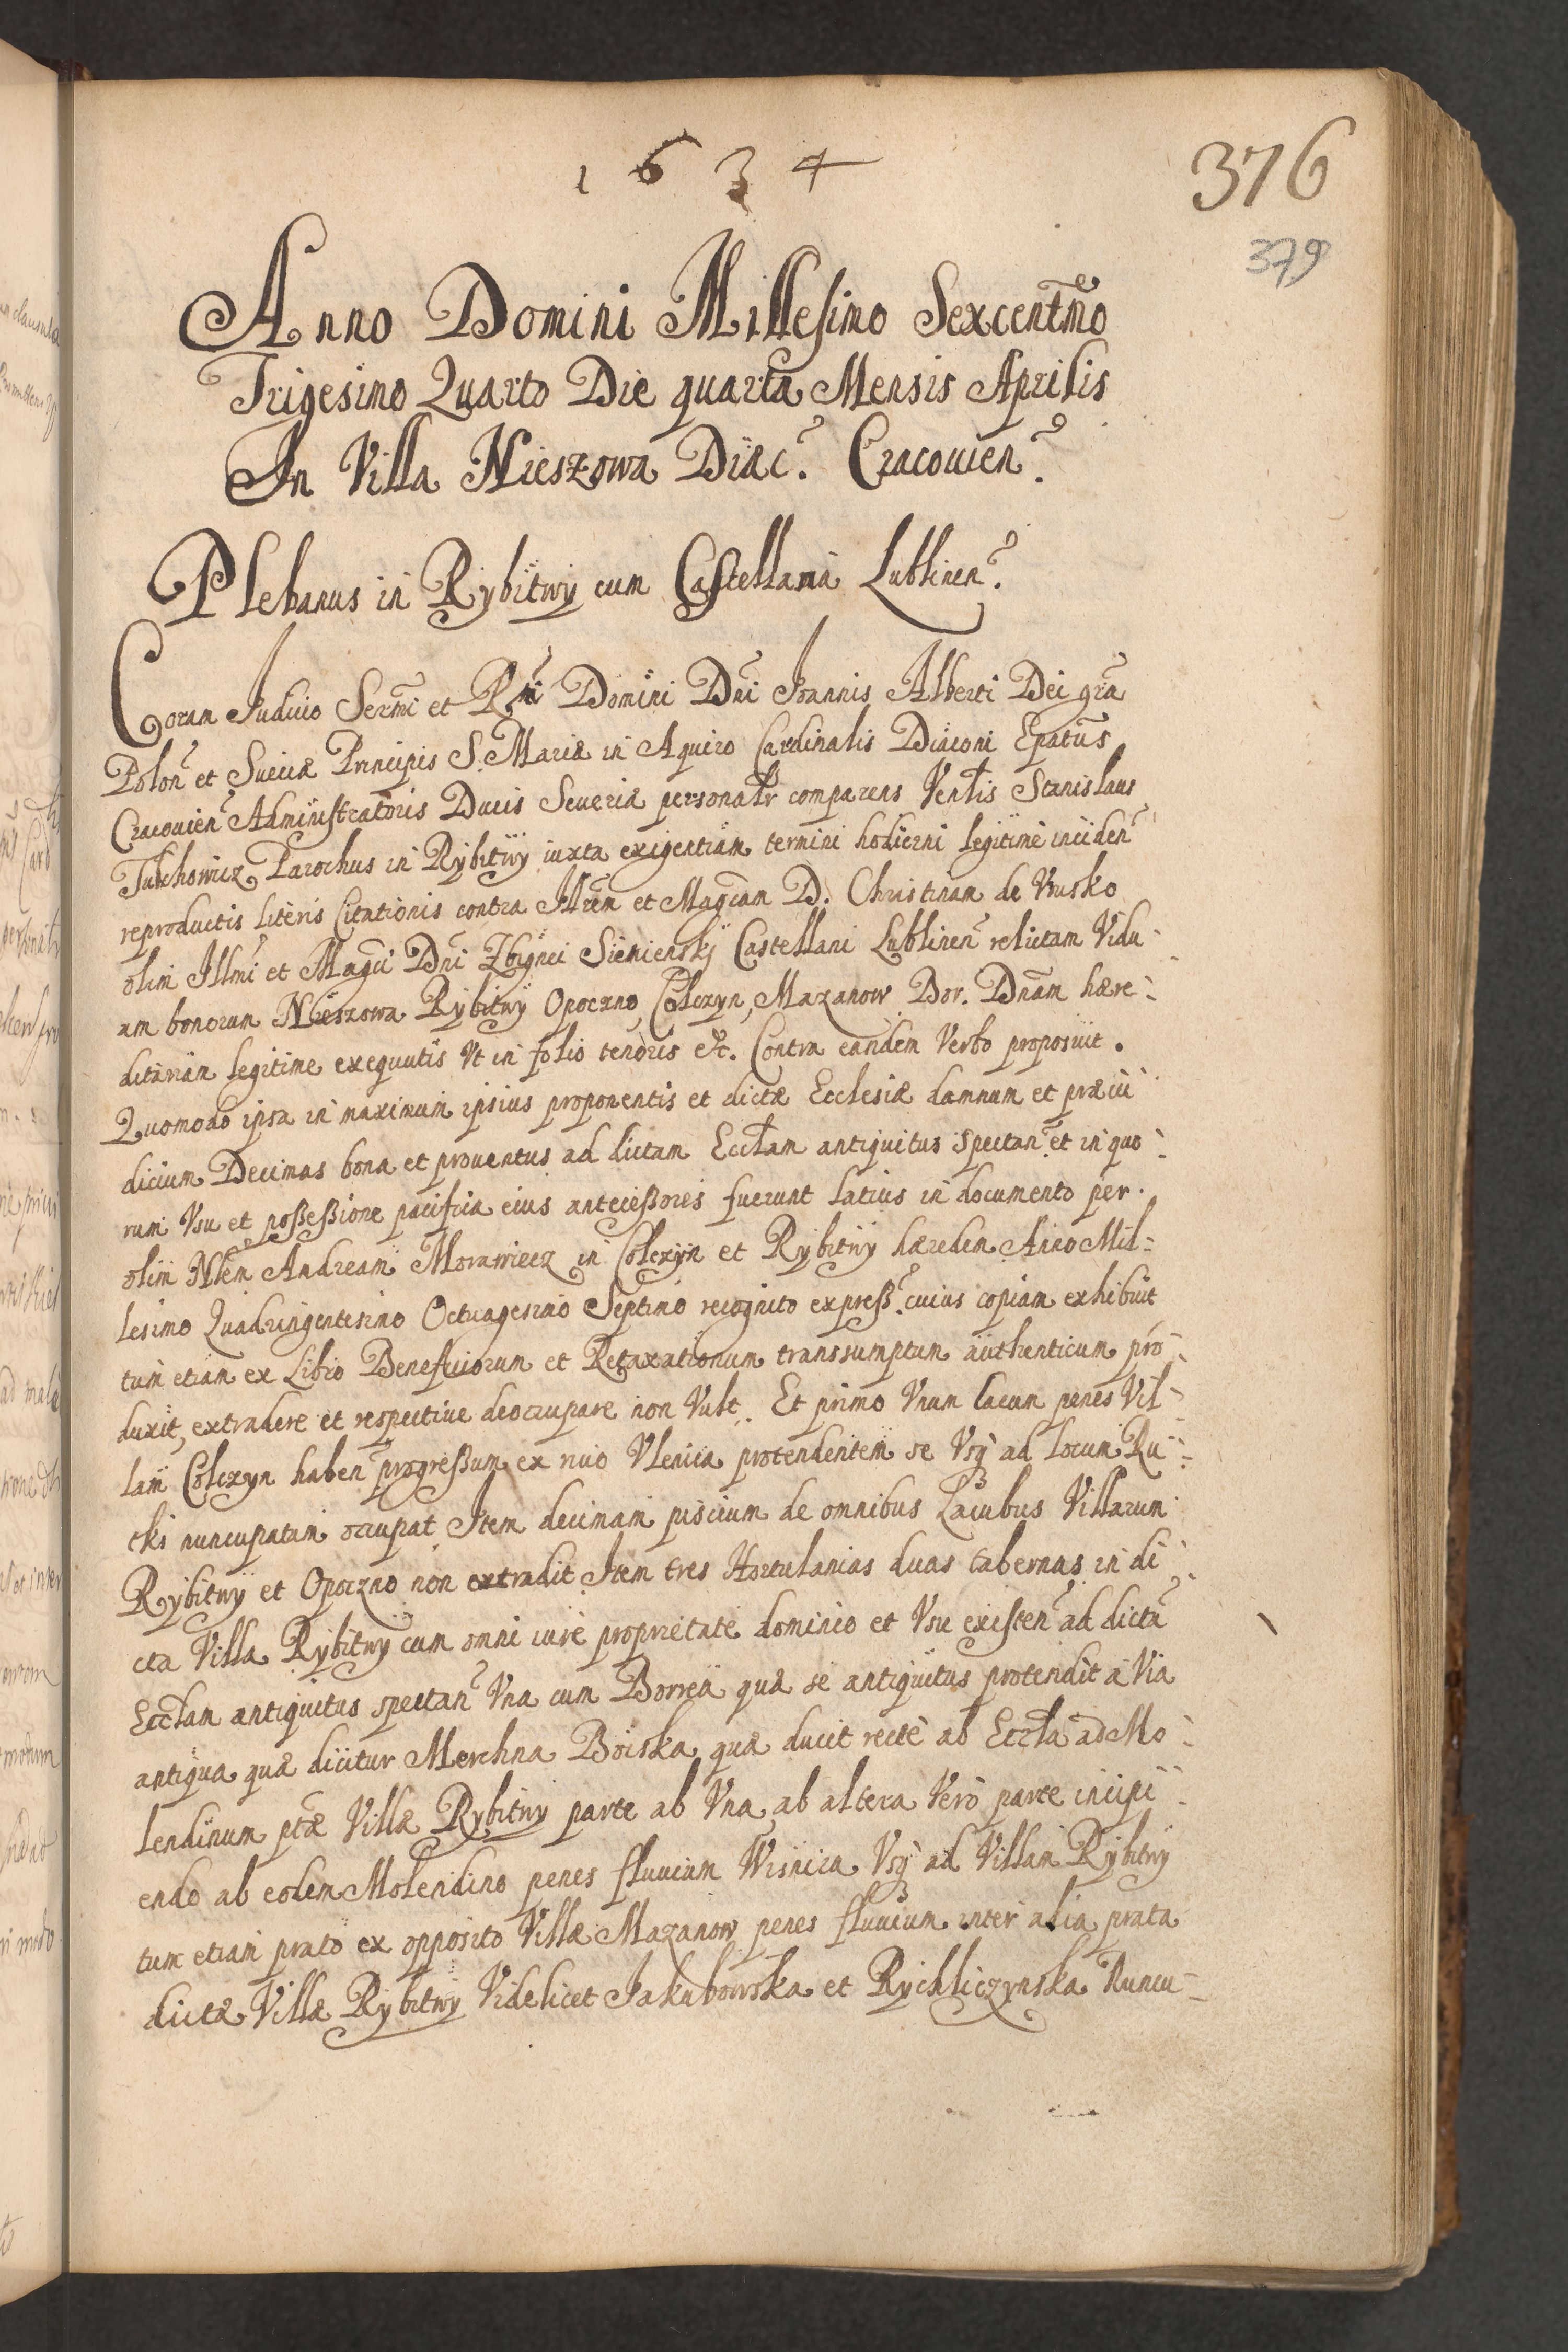 1634
376
379
Anno Domini Millesimo Sexcentmo
Trigesimo Quarto Die quarta Mensis Aprilis
In Villa Nieszowa Diæc. Cracouien.
Plebanus in Rybitwy cum Castellana Lublinen.
Coram Judicio Sermi et Rmi Domini Dni Joannis Alberti Dei gra
Polon et Sueciæ Principis S. Mariæ in Aquiro Cardinalis Diaconi Epatus
Cracouien Administratoris Ducis Seueriæ personalr comparens Venlis Stanislaus
Parochus in Rybitwy iuxta exigentiam termini hodierni legitime inciden
reproductis literis Citationis contra Illrem et Magcam D. Christinam de Vrusko
olim Illmi et Magci Dni Zbignei Sienienskj Castellani Lublinen relictam Vidu-
am bonorum Nieszowa Rybitwy Opoczno, Colczyn, Mazanow Dnam hære-
ditariam legitime exequutis Vt in folio tenoris etc. Contra eandem Verbo proposuit.
Quomodo ipsa in maximum ipsius proponentis et dictæ Ecclesiæ damnum et præiu
dicium Decimas bona et prouentus ad dictam Ecclam antiquitus spectan et in quo-
rum Vsu et possessione pacifica eius antecessores fuerunt latius in documento per.
olim Nlem Andream Morawiecz in Colczyn et Rybitwy hæredem Anno Mil-
lesimo Quadringentesimo Octuagesimo Septimo recognito express. cuius copiam exhibuit
tum etiam ex Libro Beneficiorum et Retaxationum transsumptum authenticum pro-
duxit, extradere et respectiue deoccupare non Vult. Et primo Vnum lacum penes Vil-
lam Colczyn haben progressum ex riuo Vlenica protendentem se Vsq ad locum Ru-
cki nuncupatum occupat Item decimam piscium de omnibus Lacubus Villarum
Rybitwy et Opoczno non extradit Item tres Hortulanias duas tabernas in di-
cta Villa Rybitwy cum omni iure proprietate dominio et Vsu existen ad dicta
Ecclam antiquitus spectan Vna cum Borrea quæ se antiquitus protendit a Via
antiqua quæ dicitur Merchna Boiska quæ ducit recte ab Eccla ad Mo-
lendinum ptæ Villæ Rybitwy parte ab Vna, ab altera Vero parte incipi-
endo ab eodem Molendino penes fluuium Wisnica Vsq ad Villam Rybitwy
tum etiam prato ex opposito Villæ Mazanow penes fluuium inter alia prata
dictæ Villæ Rybitwy Videlicet Jakubowska et Rychliczynska Nuncu-